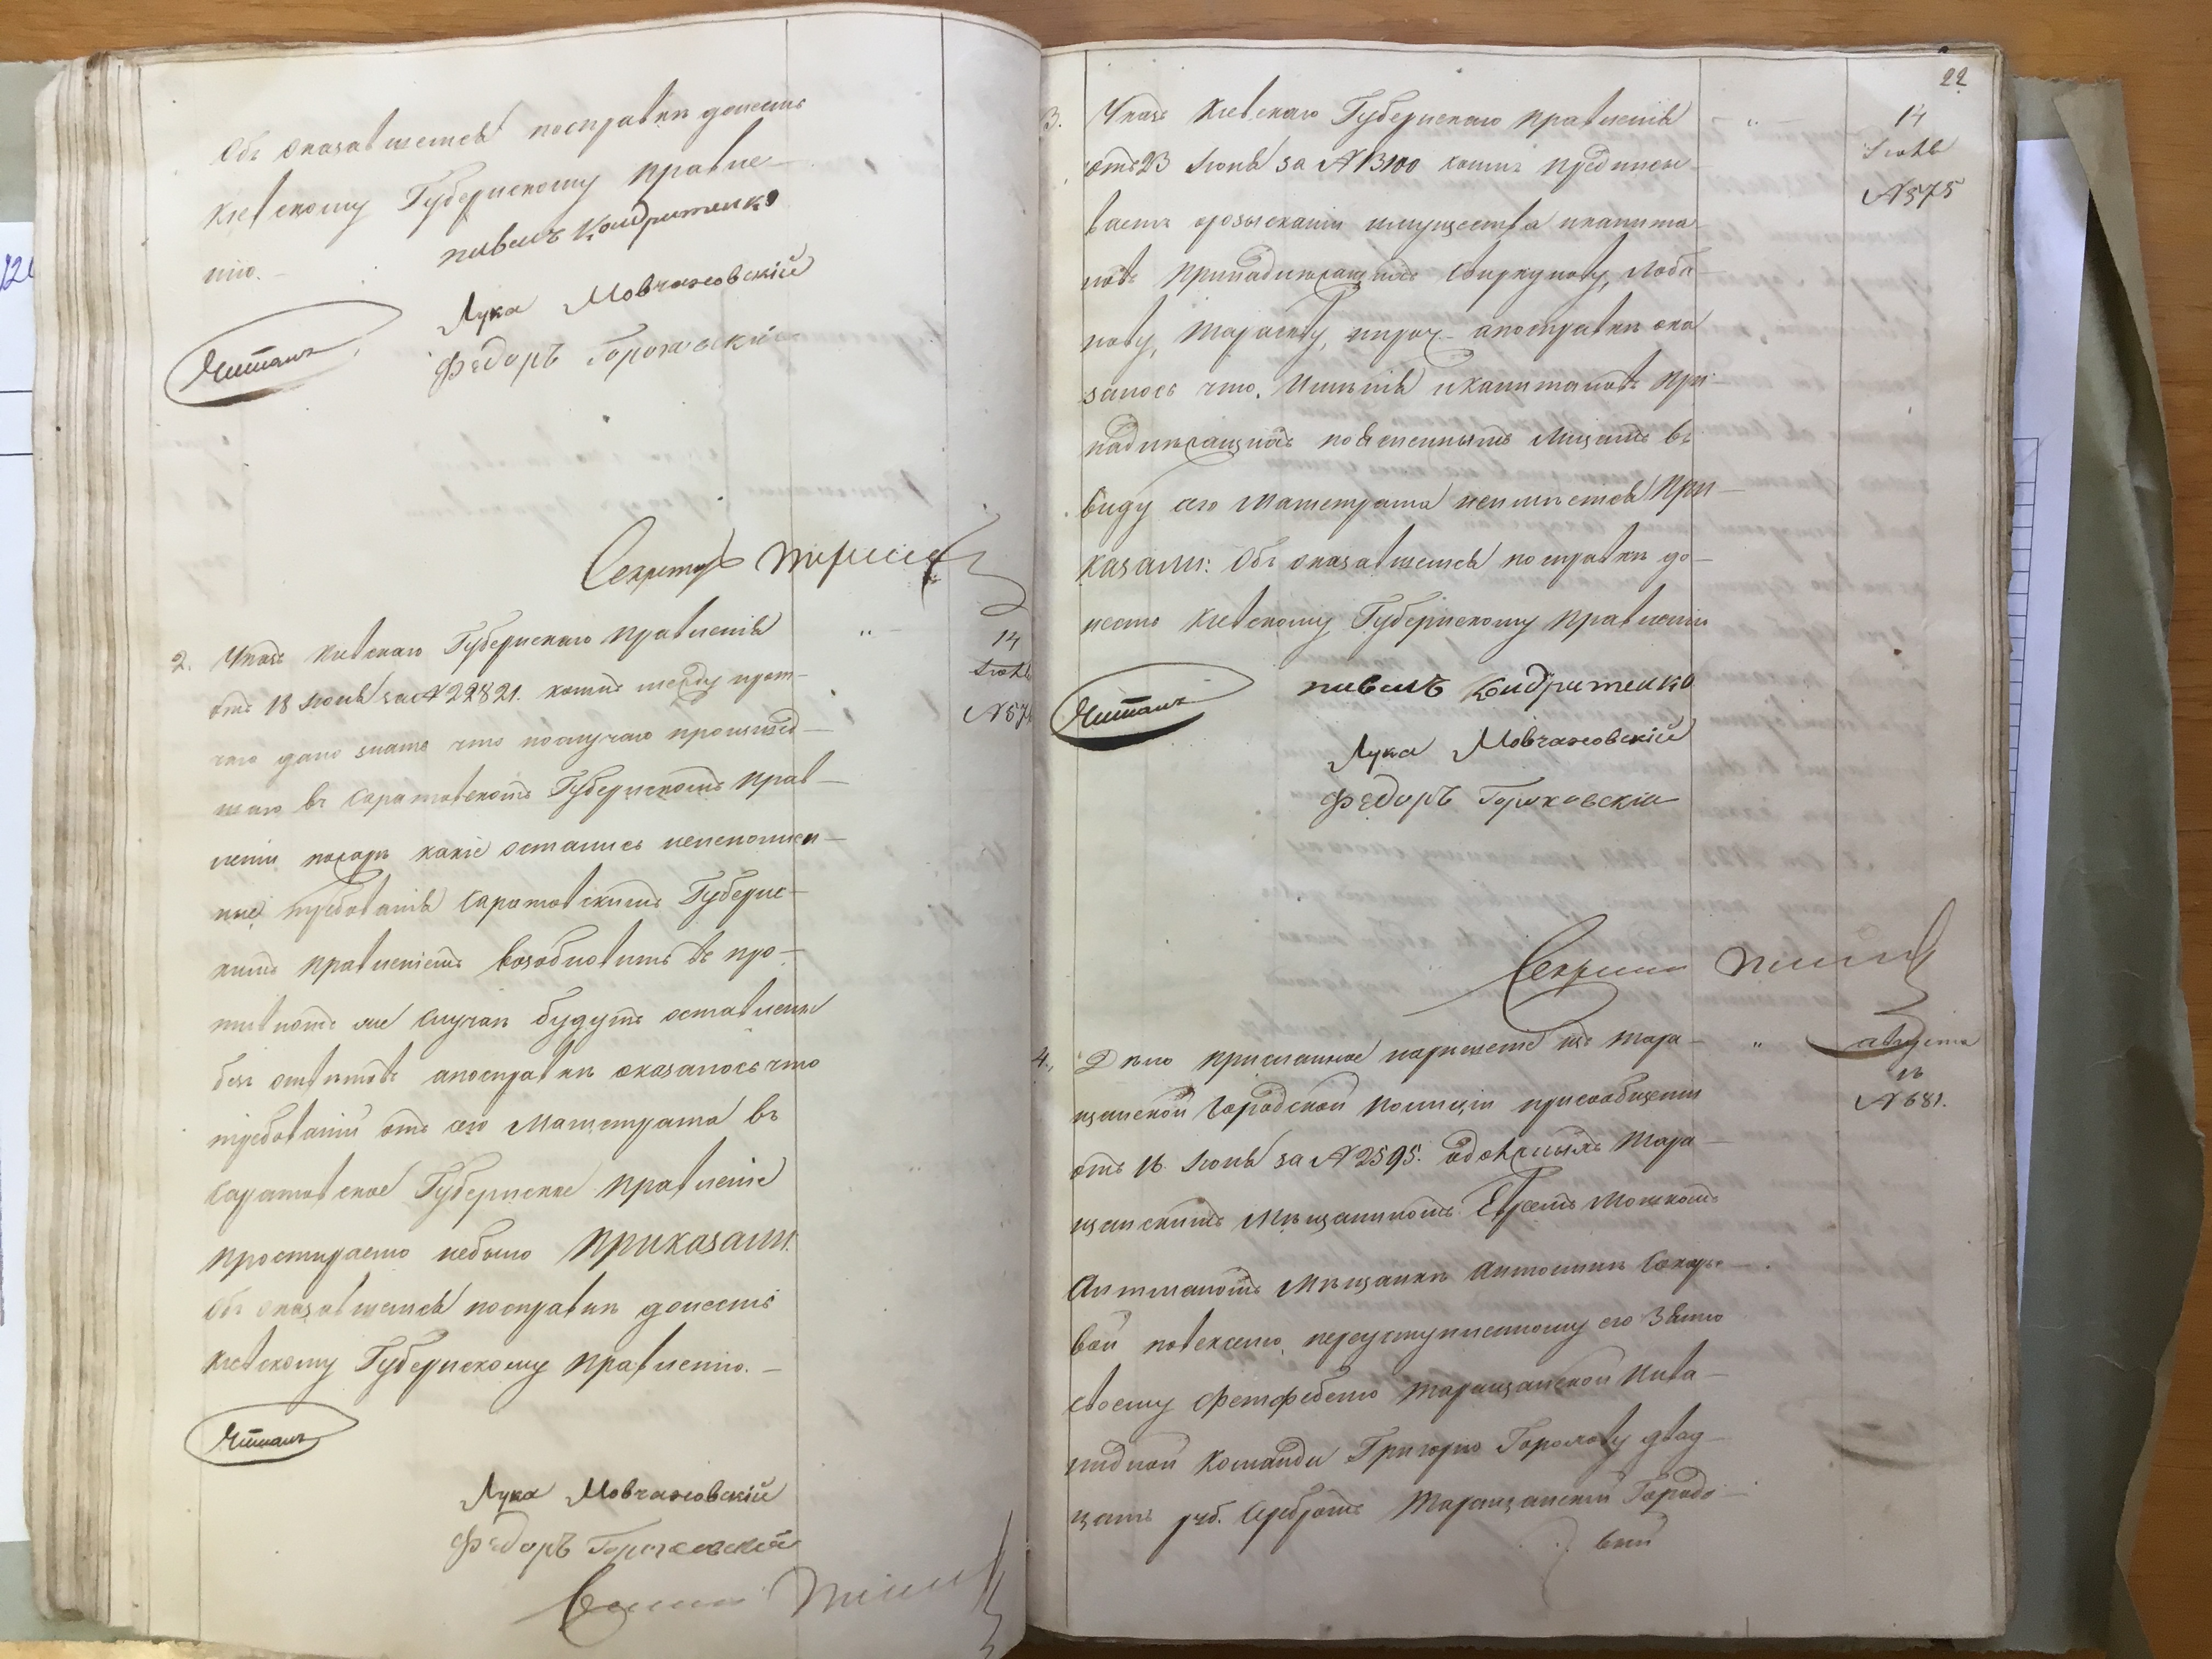 Объ оказавшемся посправкѣ донесть
Кіевскому Губернскому Правле-
нію.
Павелъ Кондратенко
Лука Мовчановскій
Федоръ Гороховскій
Читалъ
Секретарь
2. Указъ Кіевскаго Губернскаго Правленія
14
Іюля
отъ 18 Іюня за № 22821. коимъ между проч-
№ 57
чего дано знать что послучаю происшед-
шаго въ Саратовскомъ Губернскомъ Прав-
леніи пожара какіе остались неисполнен-
ные требованія Саратовскимъ Губернс-
кимъ Правленіемъ возобновить въ про-
тивномъ же случаѣ будутъ оставлены
безъ отвѣтовъ апосправкѣ оказалось что
требованій отъ сего Магистрата въ
Саратовское Губернское Правленіе
простираемо небыло Приказали:
Объ оказавшемся посправкѣ донесть
Кіевскому Губернскому Правленію.
Читалъ
Лука Мовчановскій
Федоръ Гороховскій
22
3. Указъ Кіевскаго Губернскаго Правленія
14
Іюля
отъ 23 Іюня за № 13100 коимъ предписы-
№ 575
ваетъ орозысканіи имущества икапита-
ловъ принадлежащихъ Свиркунову, Лоба-
нову, Тарасову, ипроч. апосправкѣ ока
залось что, Имѣнія икапиталовъ при-
надлежащихъ поясненнымъ Лицамъ въ
виду сего Магистрата неимѣется При-
казали: Объ оказавшемся посправкѣ до-
несть Кіевскому Губернскому Правленію
Читалъ
Павелъ Кондратенко
Лука Мовчановскій
Федоръ Гороховскій
4., Дѣло присланное изъ Тара-
Августа
щанской Городской Полиціи присообщеніи
№ 681.
отъ 16 Іюня за № 2595. Тара-
щанскимъ Мѣщаниномъ Евреемъ Мошкомъ
Мѣщанкѣ
вой повекселю, переуступленному его Зятю
своему Фетфебелю Таращанской Инва-
лидной Команды Григорію двад-
цать руб. серебромъ Таращанскій Городо-
вый